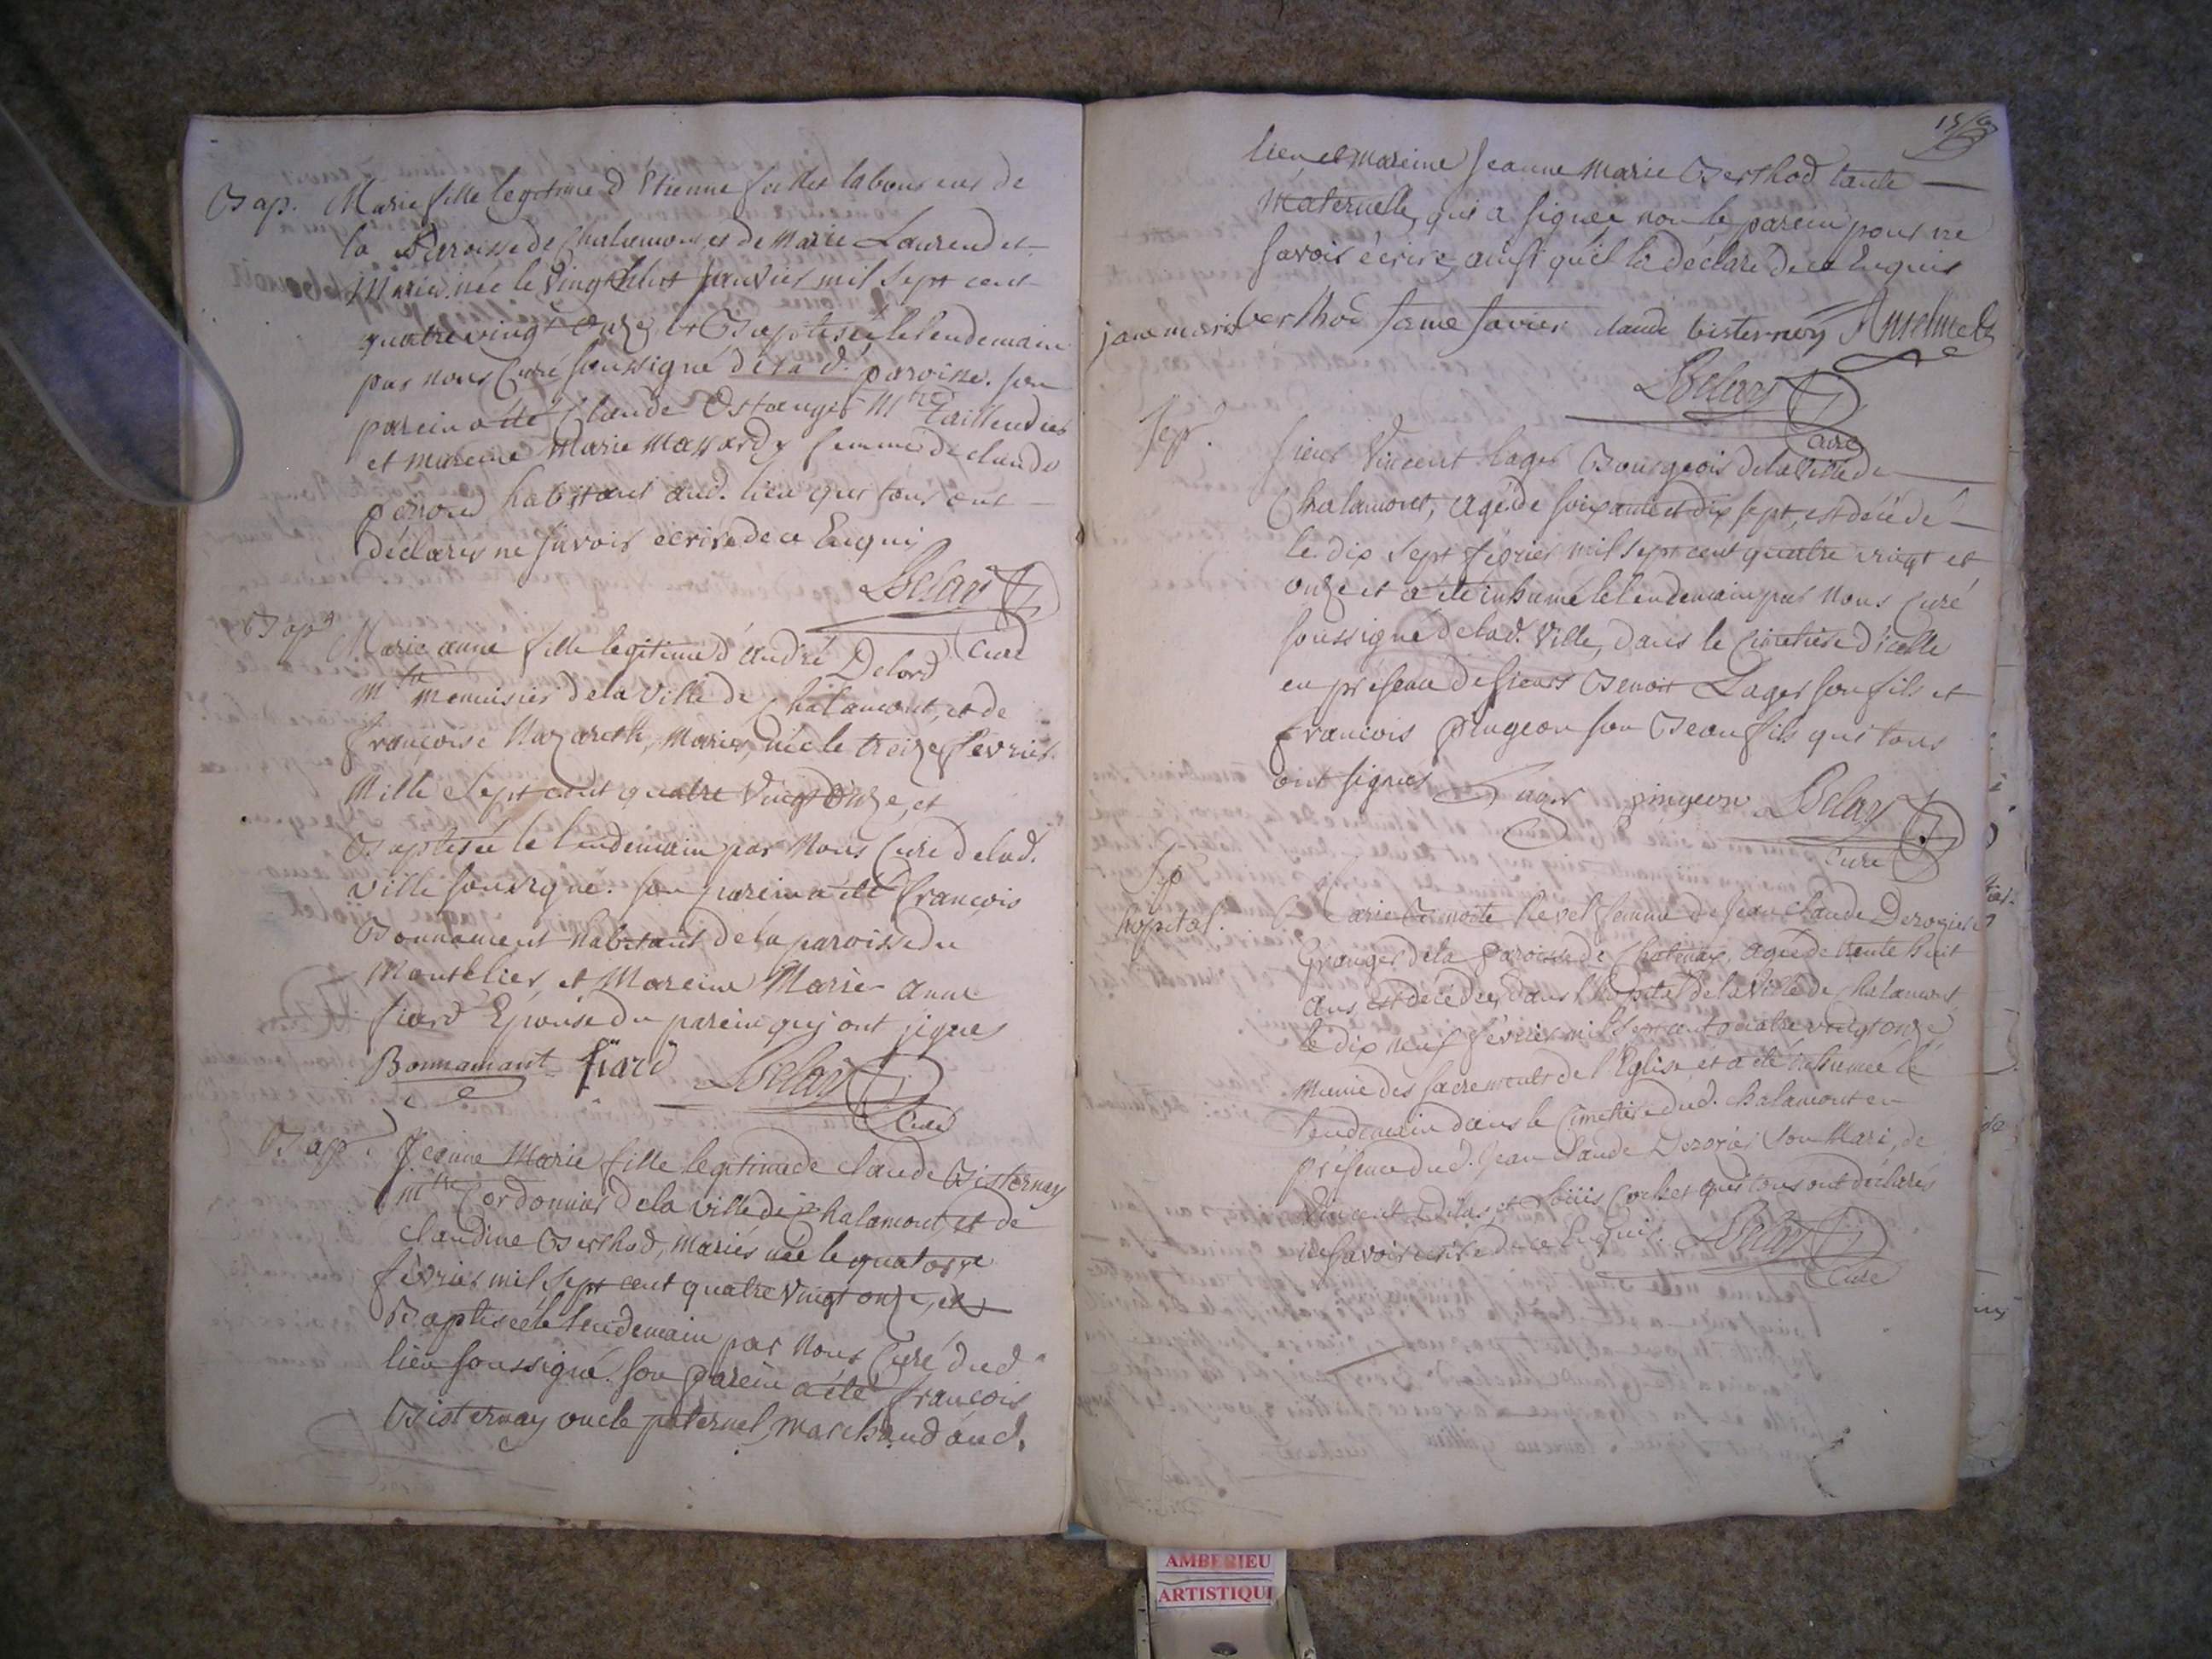 Bap. Marie fille legitime d'Etienne laboureur de
la Paroisse de Chalamont, et de Marie Laurend et
Mariée née le vingt huit janvier mil sept cent
quatre vingt onze et Baptisée le lendemain
par nous Curé soussigné de la d. paroisse. son
parein a été Claude M.tre Taillendier
et mareine Marie Massardy femme de claude
habitant aud. lieu qui tous ont
déclarés ne savoir écrire de ce Enquis
Curé
Bap. Marie anne fille legitime d'andré Delord
M.tre Menuisier de la Ville de Chalamont, et de
françoise Nazareth, Mariés, née le treize fevrier
Mille Sept cent quatre Vingt Onze, et
Baptisée le lendemain par Nous Curé de lad.
Ville soussigné. son parein a été françois
Bonnament habitant de la paroisse du
Montelier, et Mareine Marie anne
fiard Epouse du parein qui ont signés
Bonnamant fiard
Curé
Bap. Jeanne Marie fille legitime de claude Bisternay
m.tre Cordonnier de la ville de Chalamont et de
claudine Berthod, mariés née le quatorze
fevrier mil sept cent quatre vingt onze, et
Baptisée le lendemain par nous Curé dud.
lieu soussigné. son parein a été françois
Bisternay oncle paternel, marchand aud.
lieu et mareine Jeanne Marie Berthod tante
Maternelle, qui a signée non le parein pour ne
savoir écrire, ainsi qu'il l'a déclaré de ce Enquis
jane marie berthod claude bisternay Anselmetz
Curé
Sep. sieur Vincent Lager Bourgeois de la Ville de
Chalamont, agé de soixante et dix sept, est décédé
le dix sept fevrier mil sept cent quatre vingt et
onze et a été inhumé le lendemain par Nous Curé
soussigné de lad. Ville, dans le Cimetiere d'icelle
en présence de sieurs Benoit Lager son fils et
francois Pingeon son Beau fils qui tous
ont signés Lager pingeon
Curé
Sep
hopital. Marie Benoite Revel femme de Jean claude Derogier
Granger de la paroisse de Chatenay, agée de trente huit
ans, est décédée dans l'hopital de la Ville de Chalamont
le dix neuf fevrier mil sept cent quatre vingt onze,
munie des sacrements de l'Eglise et a été inhumée le
lendemain dans le Cimetiere dud. Chalamont en
présence dud. Jean claude son Mari, de
Vincent et Loüis Cochet qui tous ont déclarés
ne savoir écrire de ce Enquis.
Curé
AMBERIEU
ARTISTIQU